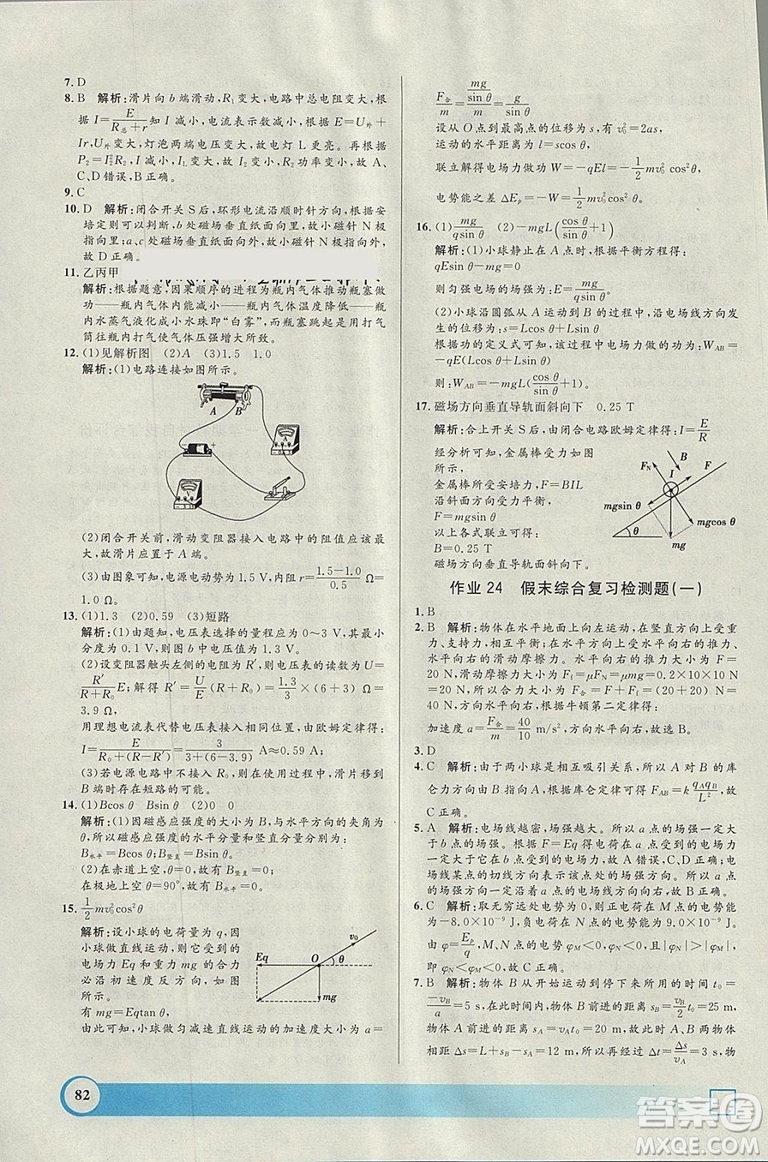 7. D
8. B 解析:滑片向 b 端滑动,R₁ 变大,电路中总电阻变大,根
据 I=E/(R总+r) 知 I 减小,电流表示数减小. 由 U外=E-
Ir,U外 变大,灯两端电压变大,故电灯 L 更亮。再根据
P₂=I₂²R₂,I 减小,I_L 变大,故 I₂ 减小,R₂ 功率变小,故 A、
C、D错误,B正确。
9. C
10. D 解析:闭合开关 S后,环形电流沿顺时针方向,根据安
培定则可以判断,b处磁场垂直纸面向里,故小磁针 N
极指向里;a、c处磁场垂直纸面向外,故小磁针 N极指向外,
故 D正确。
11. 乙丙甲
解析:根据题意,因果顺序的进程为瓶内气体推动瓶塞做
功——瓶内气体内能减小——瓶内气体温度降低——瓶
内水蒸气液化成小水珠即“白雾”,而瓶塞跳起是由于打气
筒往瓶内打气使气体压强增大所致。
12. (1)见解析图 (2)A (3)1.5 1.0
解析:(1)电路连接如图所示。
A B
(2)闭合开关前,滑动变阻器接入电路中的阻值应该最
大,故滑片应置于 A 端。
(3)由图象可知,电源电动势为 1.5 V,内阻 r=(1.5-1.0)/0.5 Ω=
1.0 Ω
13. (1)1.3 (2)3.9 0.59 (3)短路
解析:(1)由题知,电压表的量程应为 0～3 V,所以读数
为 1.3 V。
(2)设变阻器触头左侧的电阻为 R′,由闭合电路知:U=
R′/(R+R₀)E;解得 R′=U/E(R+R₀)=1.3/3×(6+3) Ω=
3.9 Ω
用理想电流表代替电压表接入相同位置,由欧姆定律得:
I=E/(R₀+(R-R′))=3/(3+(6-3.9)) A≈0.59 A
(3)若电源电路中不接入定值电阻,则当滑片移到最右
端时,存在短路的可能。
14. (1)Bcos θ Bsin θ (2)0 0
解析:(1)因为磁感应强度的水平分量与水平方向的夹角为
θ,所以磁感应强度的水平分量和竖直分量大小分别为:
B水平=Bcos θ;B竖直=Bsin θ。
(2)在赤道上空,θ=0°,故 B竖直=0;
在极地上空,θ=90°,故 B水平=0。
15. 1/2mv₀²cos²θ
解析:设小球的电荷量为 q,因
小球做直线运动,则它受到的
电场力 Eq 和重力 mg 的合力
必沿初速度反方向,如图
所示。
Eq O v₀ θ mg
有 mg=Eqtan θ,
由此可知,小球做匀减速直线运动的加速度大小为 a=
F合/m=(mg/sin θ)/m=g/sin θ
设从 O点到最高点的位移为 s,有 v₀²=2as,
运动的水平距离为 l=scos θ
联立解得电场力做功 W=-qEl=-1/2mv₀²cos²θ
电势能之差 ΔEp=-W=1/2mv₀²cos²θ
16. (1)mg/(qsin θ) (2)-mgL(cos θ/sin θ+1)
解析:(1)小球静止在 A 点,根据平衡方程得:
qEsin θ=mg
则匀强电场的场强为 E=mg/(qsin θ)
(2)小球沿圆弧从 A 运动到 B 的过程中,沿电场线方向发
生的位移为:s=Lcos θ+Lsin θ
根据功的定义式可知,该过程中电场力做功为:W_AB=
-qE(Lcos θ+Lsin θ)
则:W_AB=-mgL(cos θ/sin θ+1)
17. 磁场方向垂直导轨面斜向下 0.25 T
解析:合上开关 S后,由闭合电路欧姆定律得:I=E/R
经分析可知,金属棒受力如图
所示,
金属棒所受安培力,F=BIL
沿斜面方向受力平衡,
F=mgsin θ
以上各式联立可得:
B=0.25 T
磁场方向垂直导轨面斜向下。
F_N F mgsin θ mgcos θ θ mg
作业 24 假末综合复习检测题(一)
1. B
2. B 解析:物体在水平地面上向左运动,在竖直方向上受重
力、支持力,在水平方向上受水平向右的推力、水平向右的
滑动摩擦力。水平向右的推力大小为 F=20 N,
滑动摩擦力大小为 Ff=μF_N=μmg=0.2×10×10 N=
20 N,所以合力大小为 F合=F+Ff=(20+20) N=
40 N,方向水平向右,根据牛顿第二定律得:
加速度 a=F合/m=40/10 m/s²,方向水平向右。故选 B。
3. D
4. C 解析:由于两小球是相互吸引关系,所以 A与 B的库
仑力方向由 A 指向 B。根据库仑力公式 F_AB=k q_A q_B/L²,
故 C正确。
5. A 解析:电场线越密,场强越大。所以 a 点的场强一定大
于 b 点的场强。由 F=Eq 得电荷在 a 点受到的电场力
一定大于它在 b 点受到的电场力,A正确,C、D错误;电
场线某点的切线方向表示该点处的场强方向,因此 a 点场
强方向不一定与 b 点受到的场强方向相同,B错误。
6. C 解析:取无穷远处电势为零,则负电荷在 M 点的电势能
为-8.0×10⁻⁹ J,负电荷在 N 点的电势能为-9.0×10⁻⁹ J。
由于 φ=Ep/q,所以电势 φ_M<0,φ_N<0,且 |φ_N|>|φ_M|,
所以 φ_N<φ_M<0,故 C正确。
7. B 解析:物体 B 从开始运动到停下来所用的时间 t=
-v_B/a=5 s,在此时间内,物体 B 前进的距离 s_B=v_B/2 t=25 m,
A 前进的距离 s_A=v_A t=20 m,故此时刻 A、B 两物体
相距 Δs=L+s_B-s_A=12 m,再经过 Δt=Δs/v_A=3 s,A 追
82
答案圈
MXQE.COM